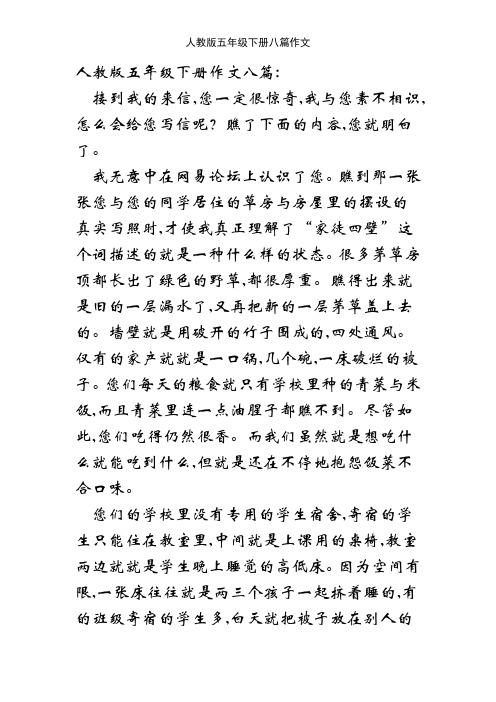 人教版五年级下册八篇作文
人教版五年级下册作文八篇:
接到我的来信,您一定很惊奇,我与您素不相识,
怎么会给您写信呢? 瞧了下面的内容,您就明白
了。
我无意中在网易论坛上认识了您。瞧到那一张
张您与您的同学居住的草房与房屋里的摆设的
真实写照时,才使我真正理解了“家徒四壁”这
个词描述的就是一种什么样的状态。很多茅草房
顶都长出了绿色的野草,都很厚重。瞧得出来就
是旧的一层漏水了,又再把新的一层茅草盖上去
的。墙壁就是用破开的竹子围成的,四处通风。
仅有的家产就就是一口锅,几个碗,一床破烂的被
子。您们每天的粮食就只有学校里种的青菜与米
饭,而且青菜里连一点油腥子都瞧不到。尽管如
此,您们吃得仍然很香。而我们虽然就是想吃什
么就能吃到什么,但就是还在不停地抱怨饭菜不
合口味。
您们的学校里没有专用的学生宿舍,寄宿的学
生只能住在教室里,中间就是上课用的桌椅,教室
两边就就是学生晚上睡觉的高低床。因为空间有
限,一张床往往就是两三个孩子一起挤着睡的,有
的班级寄宿的学生多,白天就把被子放在别人的